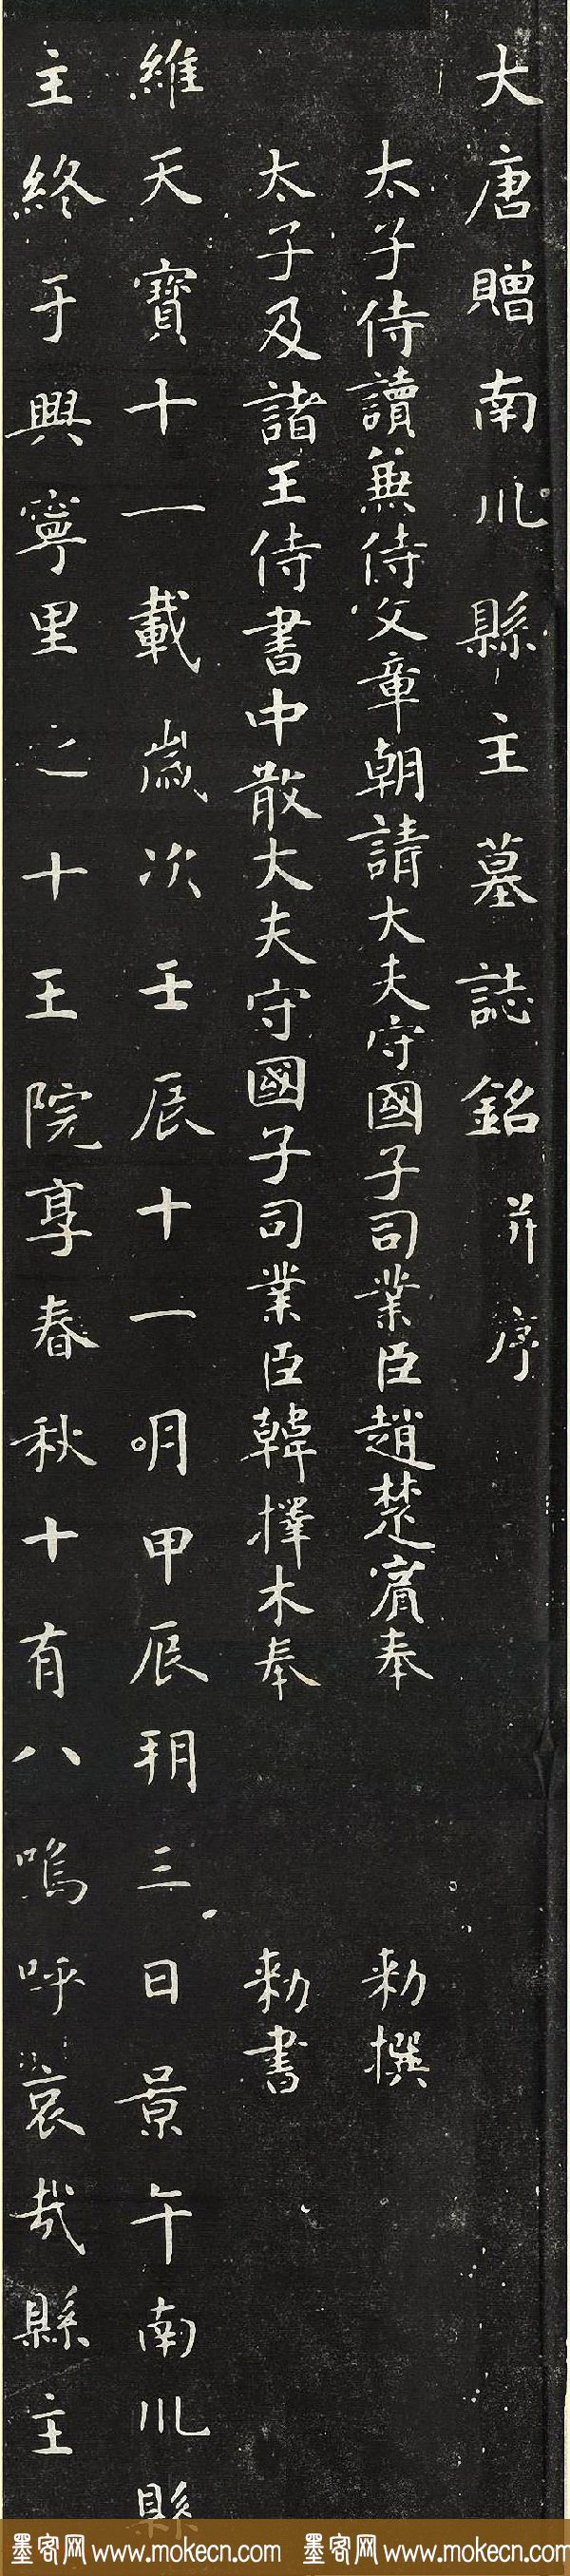 大唐贈南川縣主墓誌銘并序
太子侍讀兼侍文章朝請大夫守國子司業臣趙楚賓奉 勑撰
太子及諸王侍書中散大夫守國子司業臣韓擇木奉 勑書
維天寶十一載歲次壬辰十一明甲辰朔三日景午南川縣
主終于興寧里之十王院享春秋十有八嗚呼哀哉縣主
墨客网 www.mokecn.com 墨客网 www.mokecn.com